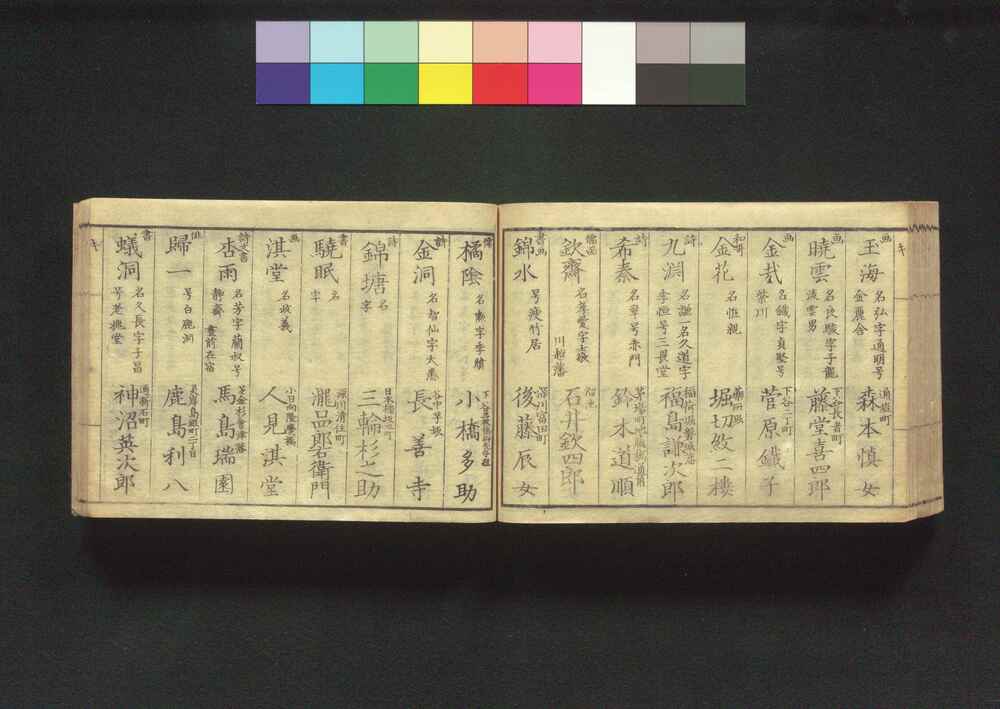 キ
画
玉海
名弘字通明号
金麗舎
森本慎女
画
暁雲
名良駿字子龍
下谷長者町
藤堂喜四郎
画
金哉
名鐵字貞堅号
紫川
下谷二丁町
菅原鐵子
金花
名恒親
堀切政二楼
詩
九淵
名謙一名久道字
季恒号三畏堂
福島謙次郎
詩
希秦
号赤門
鈴木道順
儒画
欽齋
川越藩
石井欽四郎
書画
錦水
号痩竹居
深川冨田町
後藤辰女
儒
橘陰
字季績
小橋多助
金洞
名智仙字大愚
谷中
長善寺
詩
錦塘
名
字
三輪杉之助
書
驍眠
名
字
深川清住町
瀧品郎右衛門
画
淇堂
名政義
人見淇堂
詩文書
杏雨
名芳字蘭叔号
静齋
馬島瑞園
俳
歸一
号白鹿洞
鹿島利八
書
蟻洞
名久長字子昌
号老桃堂
通新石町
神沼英次郎
キ